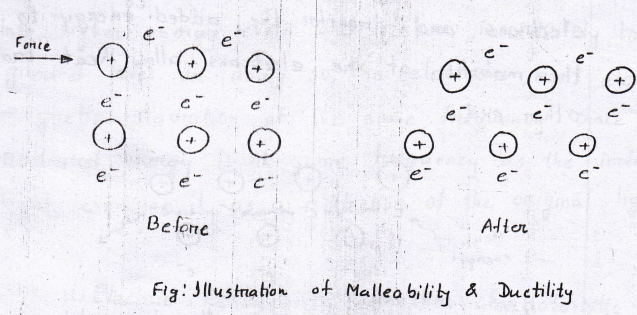 Force
e⁻ e⁻
+ + +
e⁻ e⁻ e⁻
+ + +
e⁻ e⁻ e⁻
Before
e⁻ e⁻
+ + +
e⁻ e⁻ e⁻
+ + +
e⁻ e⁻ e⁻
After
Fig: Illustration of Malleability & Ductility